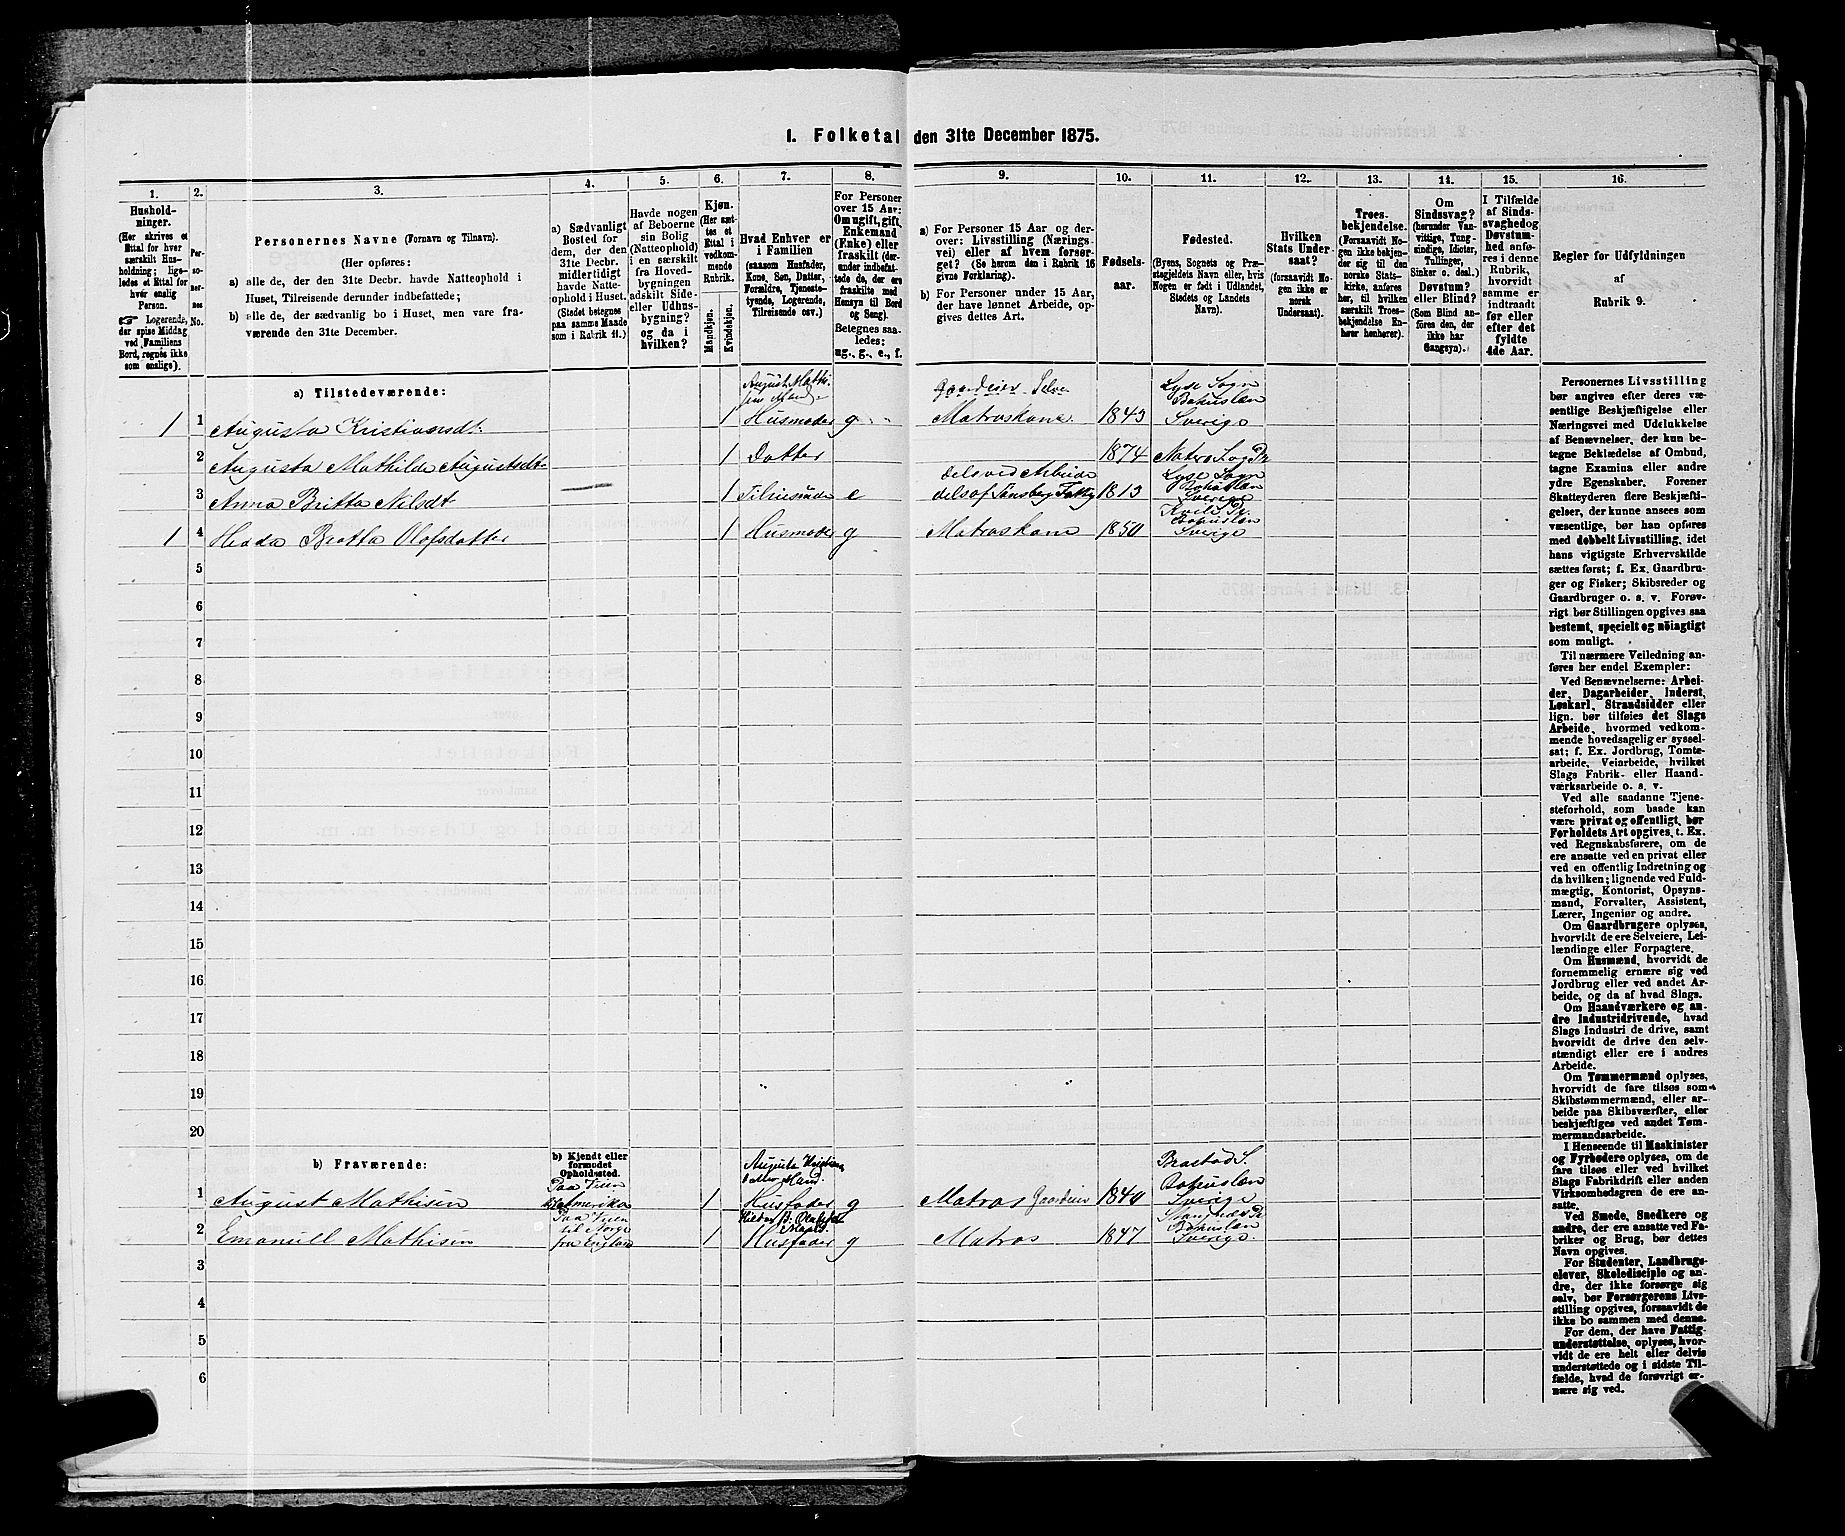 1. Folketal den 31te December 1875.
1.
Husholdninger.
(Her skrives et Ettal for hver særskilt Husholdning; ligeledes et Ettal for hver enslig Person.
☞ Logerende, der spise Middag ved Familiens Bord, regnes ikke som enslige).
2.
Personernes No.
3.
Personernes Navne (Fornavn og Tilnavn).
(Her opføres:
a) alle de, der den 31te Decbr. havde Natteophold i Huset, Tilreisende derunder indbefattede;
b) alle de, der sædvanlig bo i Huset, men vare fraværende den 31te December.
4.
a) Sædvanligt Bosted for dem, der den 31te Decbr. midlertidigt havde Natteophold i Huset.
(Stedet betegnes paa samme Maade som i Rubrik 11.)
5.
Havde nogen af Beboerne sin Bolig (Natteophold) i en særskilt fra Hovedbygningen adskilt Side- eller Udhusbygning? og da i hvilken?
6.
Kjøn.
(Her sættes et Ettal i vedkommende Rubrik.
Mandkjøn.
Kvindekjøn.
7.
Hvad Enhver er i Familien
(saasom Husfader, Kone, Søn, Datter, Forældre, Tjenestetyende, Logerende, Tilreisende osv.)
8.
For Personer over 15 Aar: Om ugift, gift, Enkemand (Enke) eller fraskilt (derunder indbefattede de, der ere fraskilte med Hensyn til Bord og Seng).
Betegnes saaledes:
ug., g., e., f.
9.
a) For Personer 15 Aar og derover: Livsstilling (Næringsvei) eller af hvem forsørget? (Se herom den i Rubrik 16 givne Forklaring).
b) For Personer under 15 Aar, der have lønnet Arbeide, opgives dettes Art.
10.
Fødselsaar.
11.
Fødested.
(Byens, Sognets og Præstegjeldets Navn eller, hvis Nogen er født i Udlandet, Stedets og Landets Navn).
12.
Hvilken Stats Undersaat?
(forsaavidt Nogen ikke er norsk Undersaat).
13.
Troesbekjendelse.
(Forsaavidt Nogen ikke bekjender sig til den norske Statskirke, anføres her, til hvilken særskilt Troesbekjendelse Enhver henhører).
14.
Om Sindssvag? (herunder Vanvittige, Tungsindige, Idioter, Tullinger, Sinker o. desl.) Døvstum? eller Blind?
(Som Blind anføres den, der ikke har Gangsyn).
15.
I Tilfælde af Sindssvaghed og Døvstumhed anføres i denne Rubrik, hvorvidt samme er indtraadt før eller efter det fyldte 4de Aar.
16.
Regler for Udfyldningen af Rubrik 9.
a) Tilstedeværende:
August Mathisens Mand
Gaardeier Selv
1 1 Augusta Kristiansdt. 1 Husmoder g Matroskone 1843 Lyse Sogn Bohuslen Sverige
2 Augusta Mathilde Augustsdt. 1 Datter 1874
3 Anna Britta Nilsdt — 1 e dels ved Arbeide dels af Tønsberg Fattig 1813 Lyse Sogn Bohuslen Sverige
1 4 Hedda Britta Olofsdatter 1 Husmoder g Matroskone 1850 Kville Pr. Bohuslen Sverige
5
6
7
8
9
10
11
12
13
14
15
16
17
18
19
20
b) Fraværende:
b) Kjendt eller formodet Opholdssted.
1 August Mathisen Paa Veien til Amerika 1 Augusta Kristiansdatters Mand. Husfader g Matros Gaardeier 1840 Brastad S. Bohuslen Sverige
2 Emanuell Mathisen Paa Veien til Norge fra England 1 Hedda B. Olofsdt Mand. Husfader g Matros 1847 Bohuslen Sverige
3
4
5
6
Personernes Livsstilling bør angives efter deres væsentlige Beskjæftigelse eller Næringsvei med Udelukkelse af Benævnelser, der kun betegne Beklædelse af Ombud, tagne Examina eller andre ydre Egenskaber. Forener Skatteyderen flere Beskjæftigelser, der kunne ansees som væsentlige, bør han opføres med dobbelt Livsstilling, idet hans vigtigste Erhvervskilde sættes først; f. Ex. Gaardbruger og Fisker; Skibsreder og Gaardbruger o. s. v. Forøvrigt bør Stillingen opgives saa bestemt, specielt og nøiagtigt som muligt.
Til nærmere Veiledning anføres her endel Exempler:
Ved Benævnelserne: Arbeider, Dagarbeider, Inderst, Løskarl, Strandsidder eller lign. bør tilføies det Slags Arbeide, hvormed vedkommende hovedsagelig er sysselsat; f. Ex. Jordbrug, Tomtearbeide, Veiarbeide, hvilket Slags Fabrik- eller Haandværksarbeide o. s. v.
Ved alle saadanne Tjenesteforhold, som baade kan være privat og offentligt, bør Forholdets Art opgives, t. Ex. ved Regnskabsførere, om de ere ansatte ved en privat eller ved en offentlig Indretning og da hvilken; lignende ved Fuldmægtig, Kontorist, Opsynsmand, Forvalter, Assistent, Lærer, Ingeniør og andre.
Om Gaardbrugere oplyses, hvorvidt de ere Selveiere, Leilændinge eller Forpagtere.
Om Husmænd, hvorvidt de fornemmelig ernære sig ved Jordbrug eller ved andet Arbeide, og da af hvad Slags.
Om Haandværkere og andre Industridrivende, hvad Slags Industri de drive, samt hvorvidt de drive den selvstændigt eller ere i andres Arbeide.
Om Tømmermænd oplyses, hvorvidt de fare tilsøs som Skibstømmermænd, eller arbeide paa Skibsværfter, eller beskjæftiges ved andet Tømmermandsarbeide.
I Henseende til Maskinister og Fyrbødere oplyses, om de fare tilsøs eller ved hvilket Slags Fabrikdrift eller anden Virksomhedsgren de ere ansatte.
Ved Smede, Snedkere og andre, der ere ansatte ved Fabriker og Brug, bør dettes Navn opgives.
For Studenter, Landbrugselever, Skoledisciple og andre, der ikke forsørge sig selv, bør Forsørgerens Livsstilling opgives, forsaavidt de ikke bo sammen med denne.
For dem, der have Fattigunderstøttelse, oplyses, hvorvidt de ere helt eller delvis understøttede og i sidste Tilfælde, hvad de forøvrigt ernære sig ved.